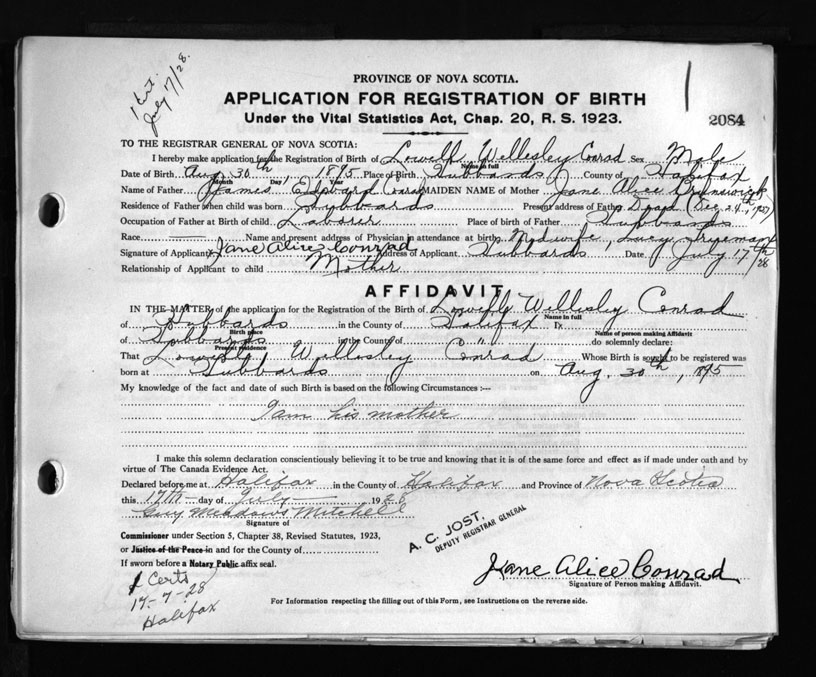 1 Cert.
July 17/28.
PROVINCE OF NOVA SCOTIA.
APPLICATION FOR REGISTRATION OF BIRTH
Under the Vital Statistics Act, Chap. 20, R. S. 1923.
2084
TO THE REGISTRAR GENERAL OF NOVA SCOTIA:
I hereby make application for the Registration of Birth of Lowell Wellesley Conrad Sex Male
Name in full
Date of Birth Aug 30th, 1895 Place of Birth Hubbards County of Halifax
Month Day Year
Name of Father James Edward Conrad MAIDEN NAME of Mother Jane Alice
Residence of Father when child was born Hubbards Present address of Father Dead (Dec. 24th, 1927)
Occupation of Father at Birth of child Laborer Place of birth of Father Hubbards
Race Name and present address of Physician in attendance at birth Midwife, Lucy
Signature of Applicant Jane Alice Conrad Address of Applicant Hubbards Date July 17th/28
Relationship of Applicant to child Mother
AFFIDAVIT
IN THE MATTER of the application for the Registration of the Birth of Lowell Wellesley Conrad
Name in full
of Hubbards in the County of Halifax
Birth place Name of person making Affidavit
of Hubbards in the County of " do solemnly declare:
Present residence
That Lowell Wellesley Conrad Whose Birth is sought to be registered was
born at Hubbards on Aug. 30th, 1895
My knowledge of the fact and date of such Birth is based on the following Circumstances :—
I am his mother
I make this solemn declaration conscientiously believing it to be true and knowing that it is of the same force and effect as if made under oath and by
virtue of The Canada Evidence Act.
Declared before me at Halifax in the County of Halifax and Province of Nova Scotia
this 17th day of July 1928
Guy Meadows Mitchell
Signature of
Commissioner under Section 5, Chapter 38, Revised Statutes, 1923,
or Justice of the Peace in and for the County of
If sworn before a Notary Public affix seal.
A. C. JOST,
DEPUTY REGISTRAR GENERAL
Jane Alice Conrad
Signature of Person making Affidavit.
1 Certs
17-7-28
Halifax
For Information respecting the filling out of this Form, see Instructions on the reverse side.